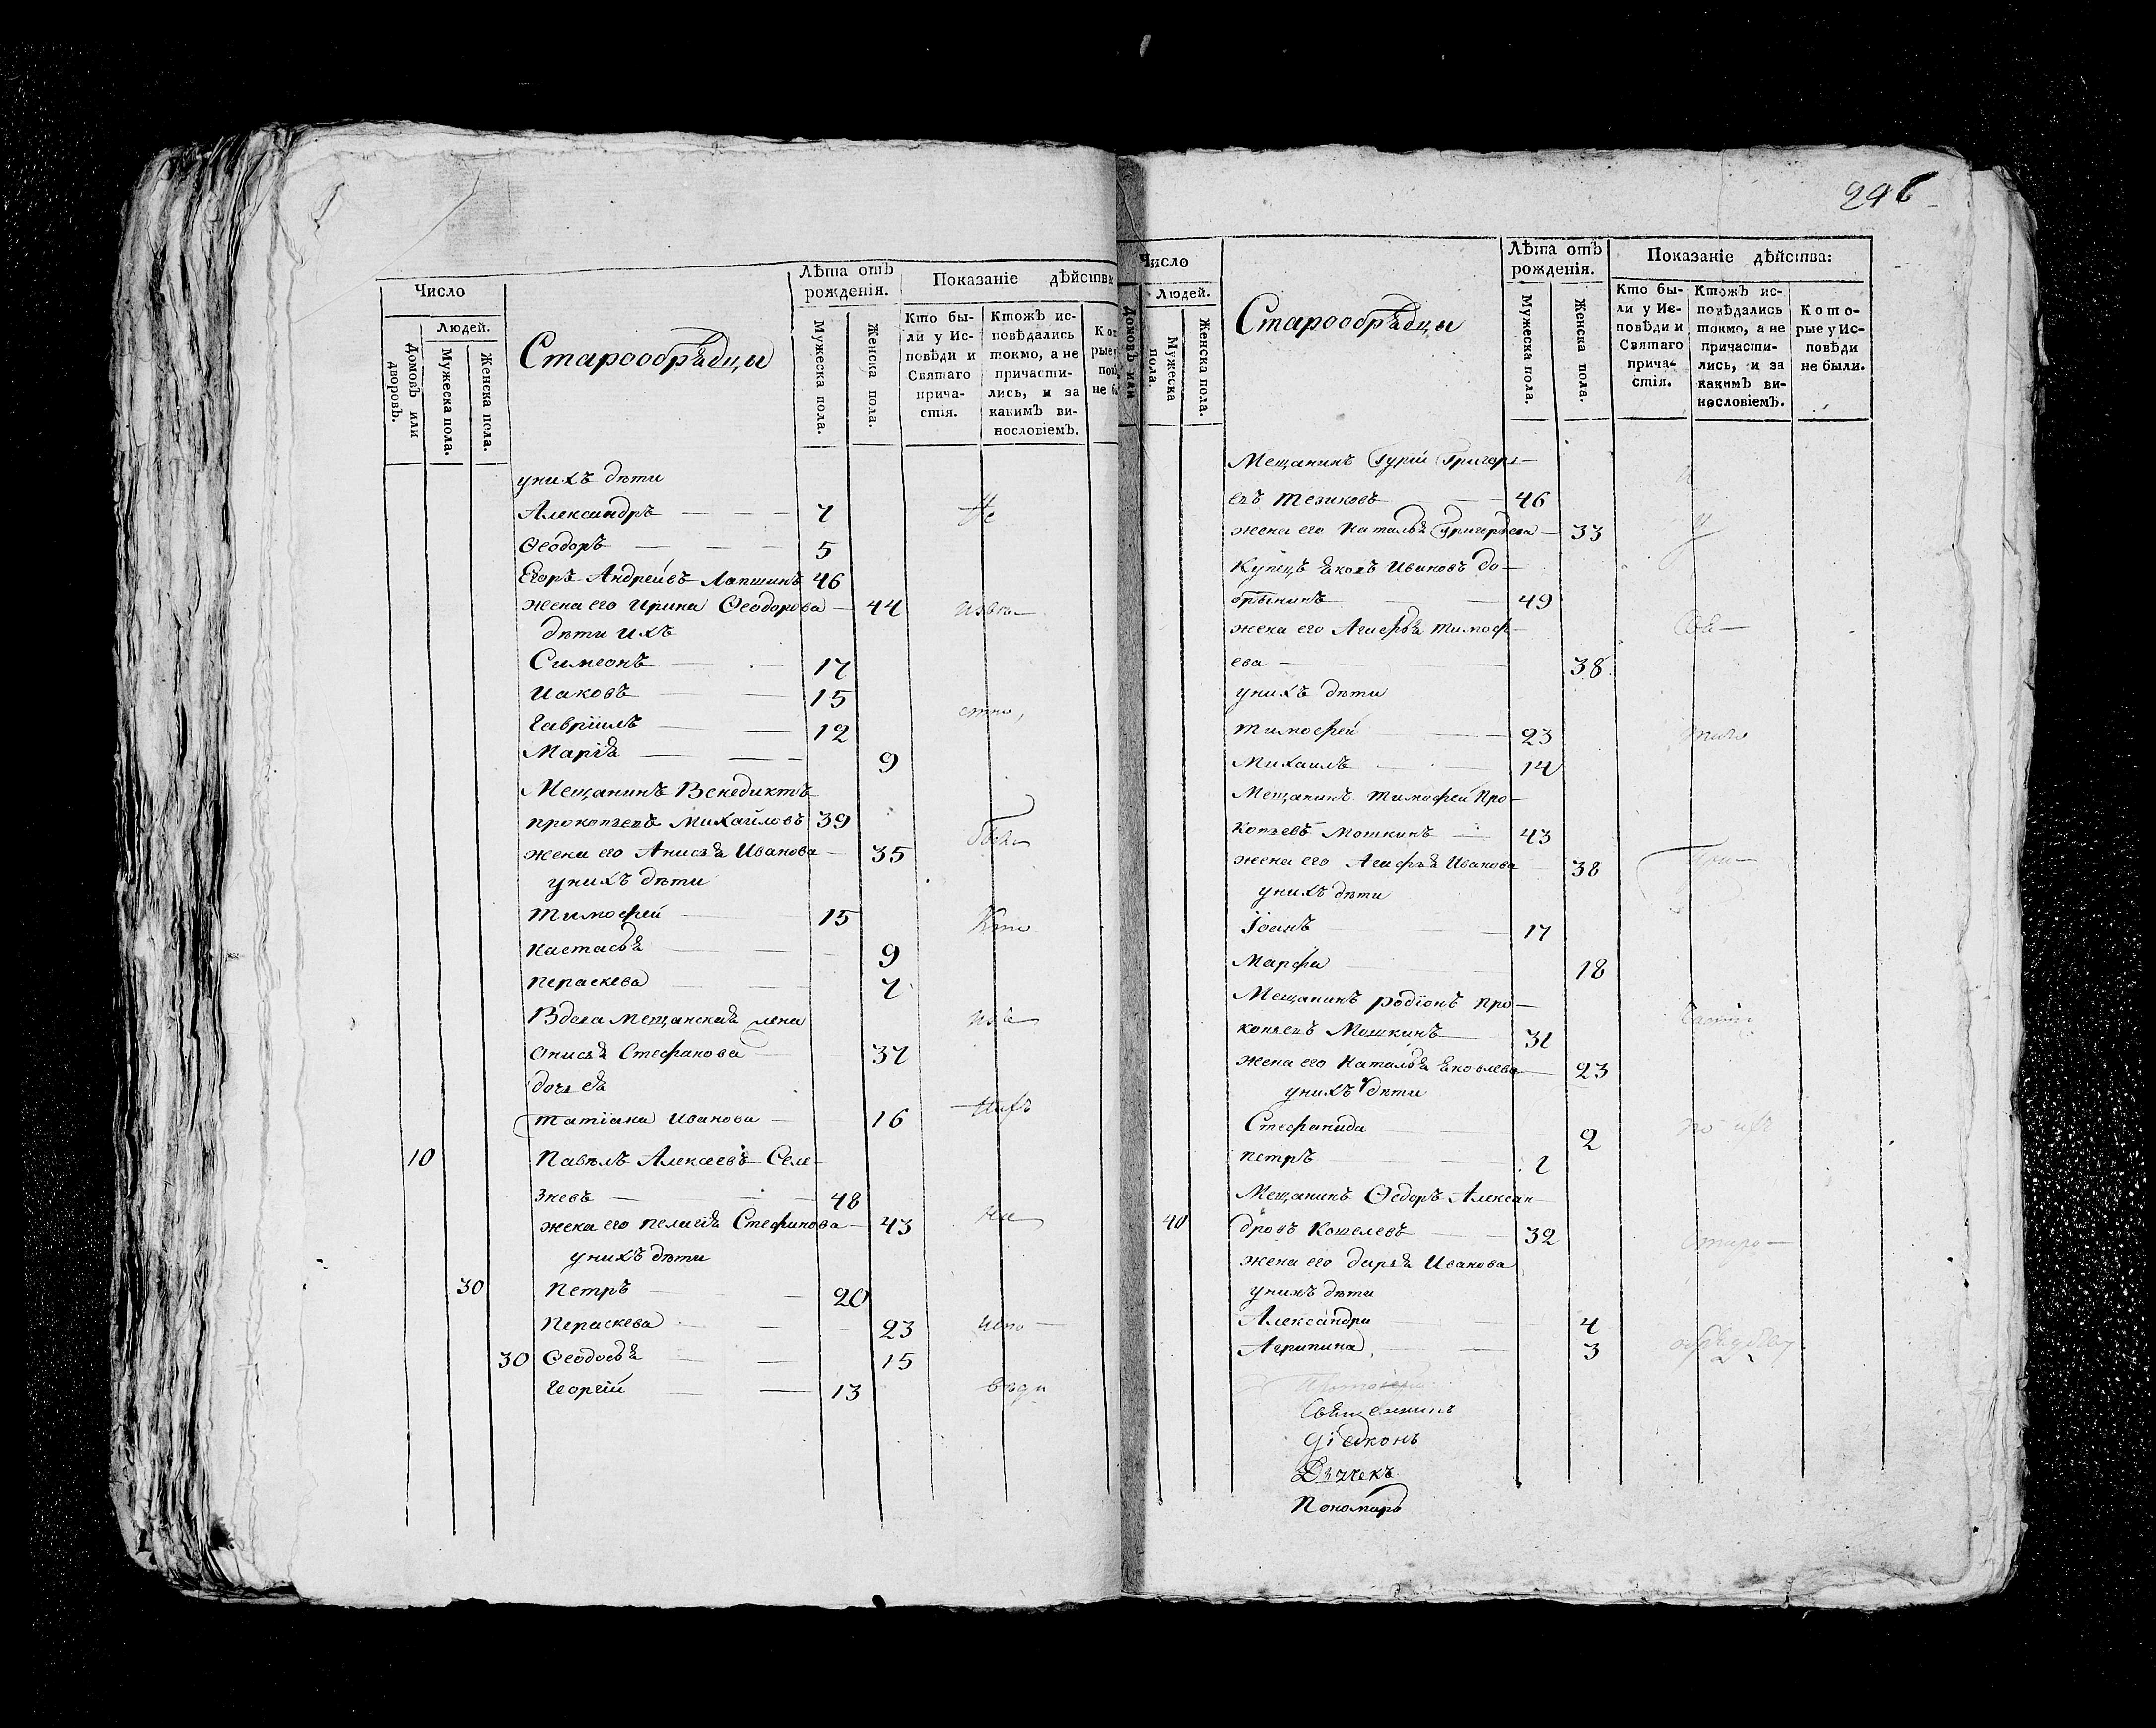 Число
Людей.
Домовъ или дворовъ.
Мужеска пола.
Женска пола.
Старообрѣдцы
Лѣта отъ рожденія.
Мужеска пола.
Женска пола.
Показаніе дѣйства
Кто бы-
ли у Ис-
повѣди и
Святаго
прича-
стія.
Ктожъ ис-
повѣдались
токмо, а не
причасти-
лись, и за
какимъ ви-
нословіемъ.
унихъ дѣти
Александръ 7 Не
Ѳеодоръ 5
Егоръ Андреивъ Лапшинъ 46
жена его Ирина Ѳеодорова 44 извѣ-
дѣти ихъ
Симеонъ 17
Иаковъ 15
Гавріилъ 12 стно,
Марія 9
Мещанинъ Венедиктъ
прокопьевъ Михайловъ 39
жена его Анисья Иванова 35
унихъ дѣти
Тимофей 15 Кто
Настасья 9
пераскева 7
Вдова Мещанская жена изъ
Онисья Стефанова 37
дочь ея
татіана Иванова 16 нихъ
10 Павелъ Алексеевъ Селе-
зневъ 48
жена его пелагія Стефанова 43 на
унихъ дѣти
30 Петръ 20
Пераскева 23 испо-
30 Ѳеодосья 15
Георгій 13 вѣди
296
Число
Людей.
Домовъ или
Мужеска пола.
Женска пола.
Старообрѣдцы
Лѣта отъ рожденія.
Мужеска пола.
Женска пола.
Показаніе дѣйства:
Кто бы-
ли у Ис-
повѣди и
Святаго
прича-
стія.
Ктожъ ис-
повѣдались
токмо, а не
причасти-
лись, и за
какимъ ви-
нословіемъ.
Кото-
рые у Ис-
повѣди
не были.
Мещанинъ Гурій Григорь-
евъ тезиковъ 46
жена его Наталья Григорьева 33
Купецъ Яковъ Ивановъ до-
брынинъ 49
жена его Агафья тимоф- Свя-
ева 38
унихъ дѣти
тимофей 23 таго
Михаилъ 14
Мещанинъ тимофей Про-
копьевъ Мошкинъ 43
жена его Агафья Иванова 38 при-
унихъ дѣти
Іоанъ 17
Марфа 18
Мещанинъ родіонъ про-
копьевъ Мошкинъ 31
жена его Наталья Яковлева 23
унихъ дѣти
Стефанида 2 по их
петръ 1
Мещанинъ Ѳедоръ Алексан-
40 дровъ Кошелевъ 32 старо-
жена его дарья Иванова
унихъ дѣти
Александра 4
Агрипина 3
Священникъ
діяконъ
Дьячекъ
Пономарь